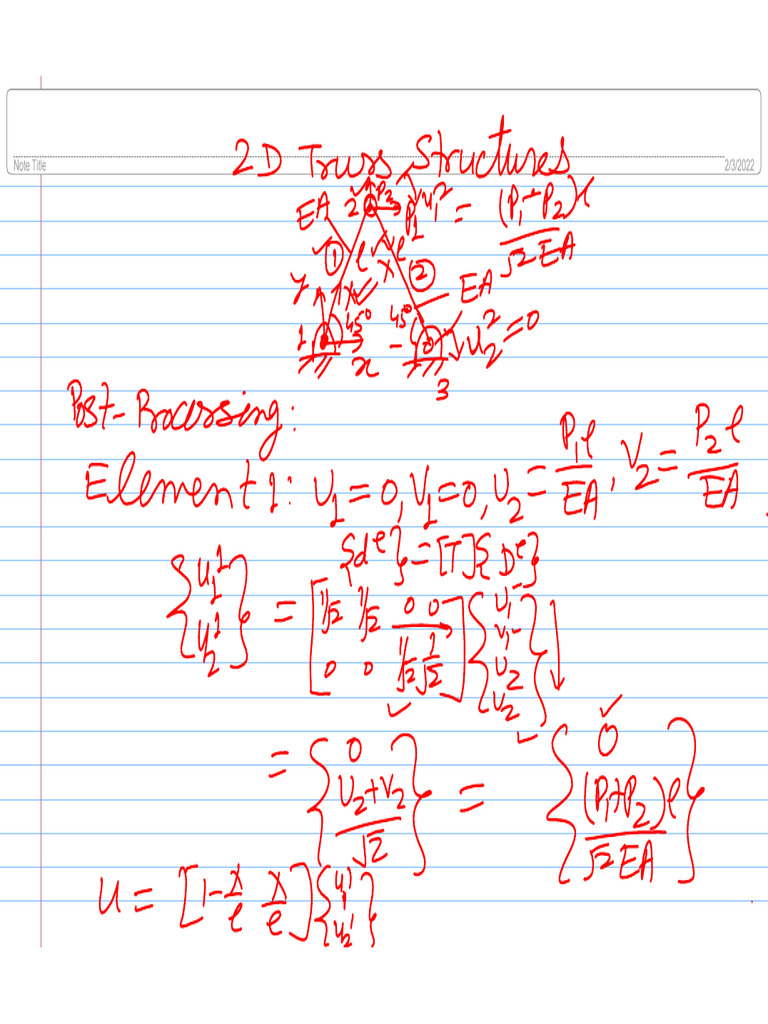 Note Title 2/3/2022
2D Truss Structures
EA 2 P2 P1 u₁² = (P₁+P₂)ℓ / √2 EA
① ℓ x ℓ ②
y x EA
1 45° 45° u₂² = 0
x 3
Post-Processing:
Element 1: U₁=0, V₁=0, U₂ = P₁ℓ/EA, V₂ = P₂ℓ/EA
{dᵉ} = [T]{Dᵉ}
{u₁¹ u₂¹} = [1/√2 1/√2 0 0; 0 0 1/√2 1/√2] {U₁ V₁ U₂ V₂}
= {0; (U₂+V₂)/√2} = {0; (P₁+P₂)ℓ/√2 EA}
u = [1-x/ℓ x/ℓ] {u₁¹ u₂¹}